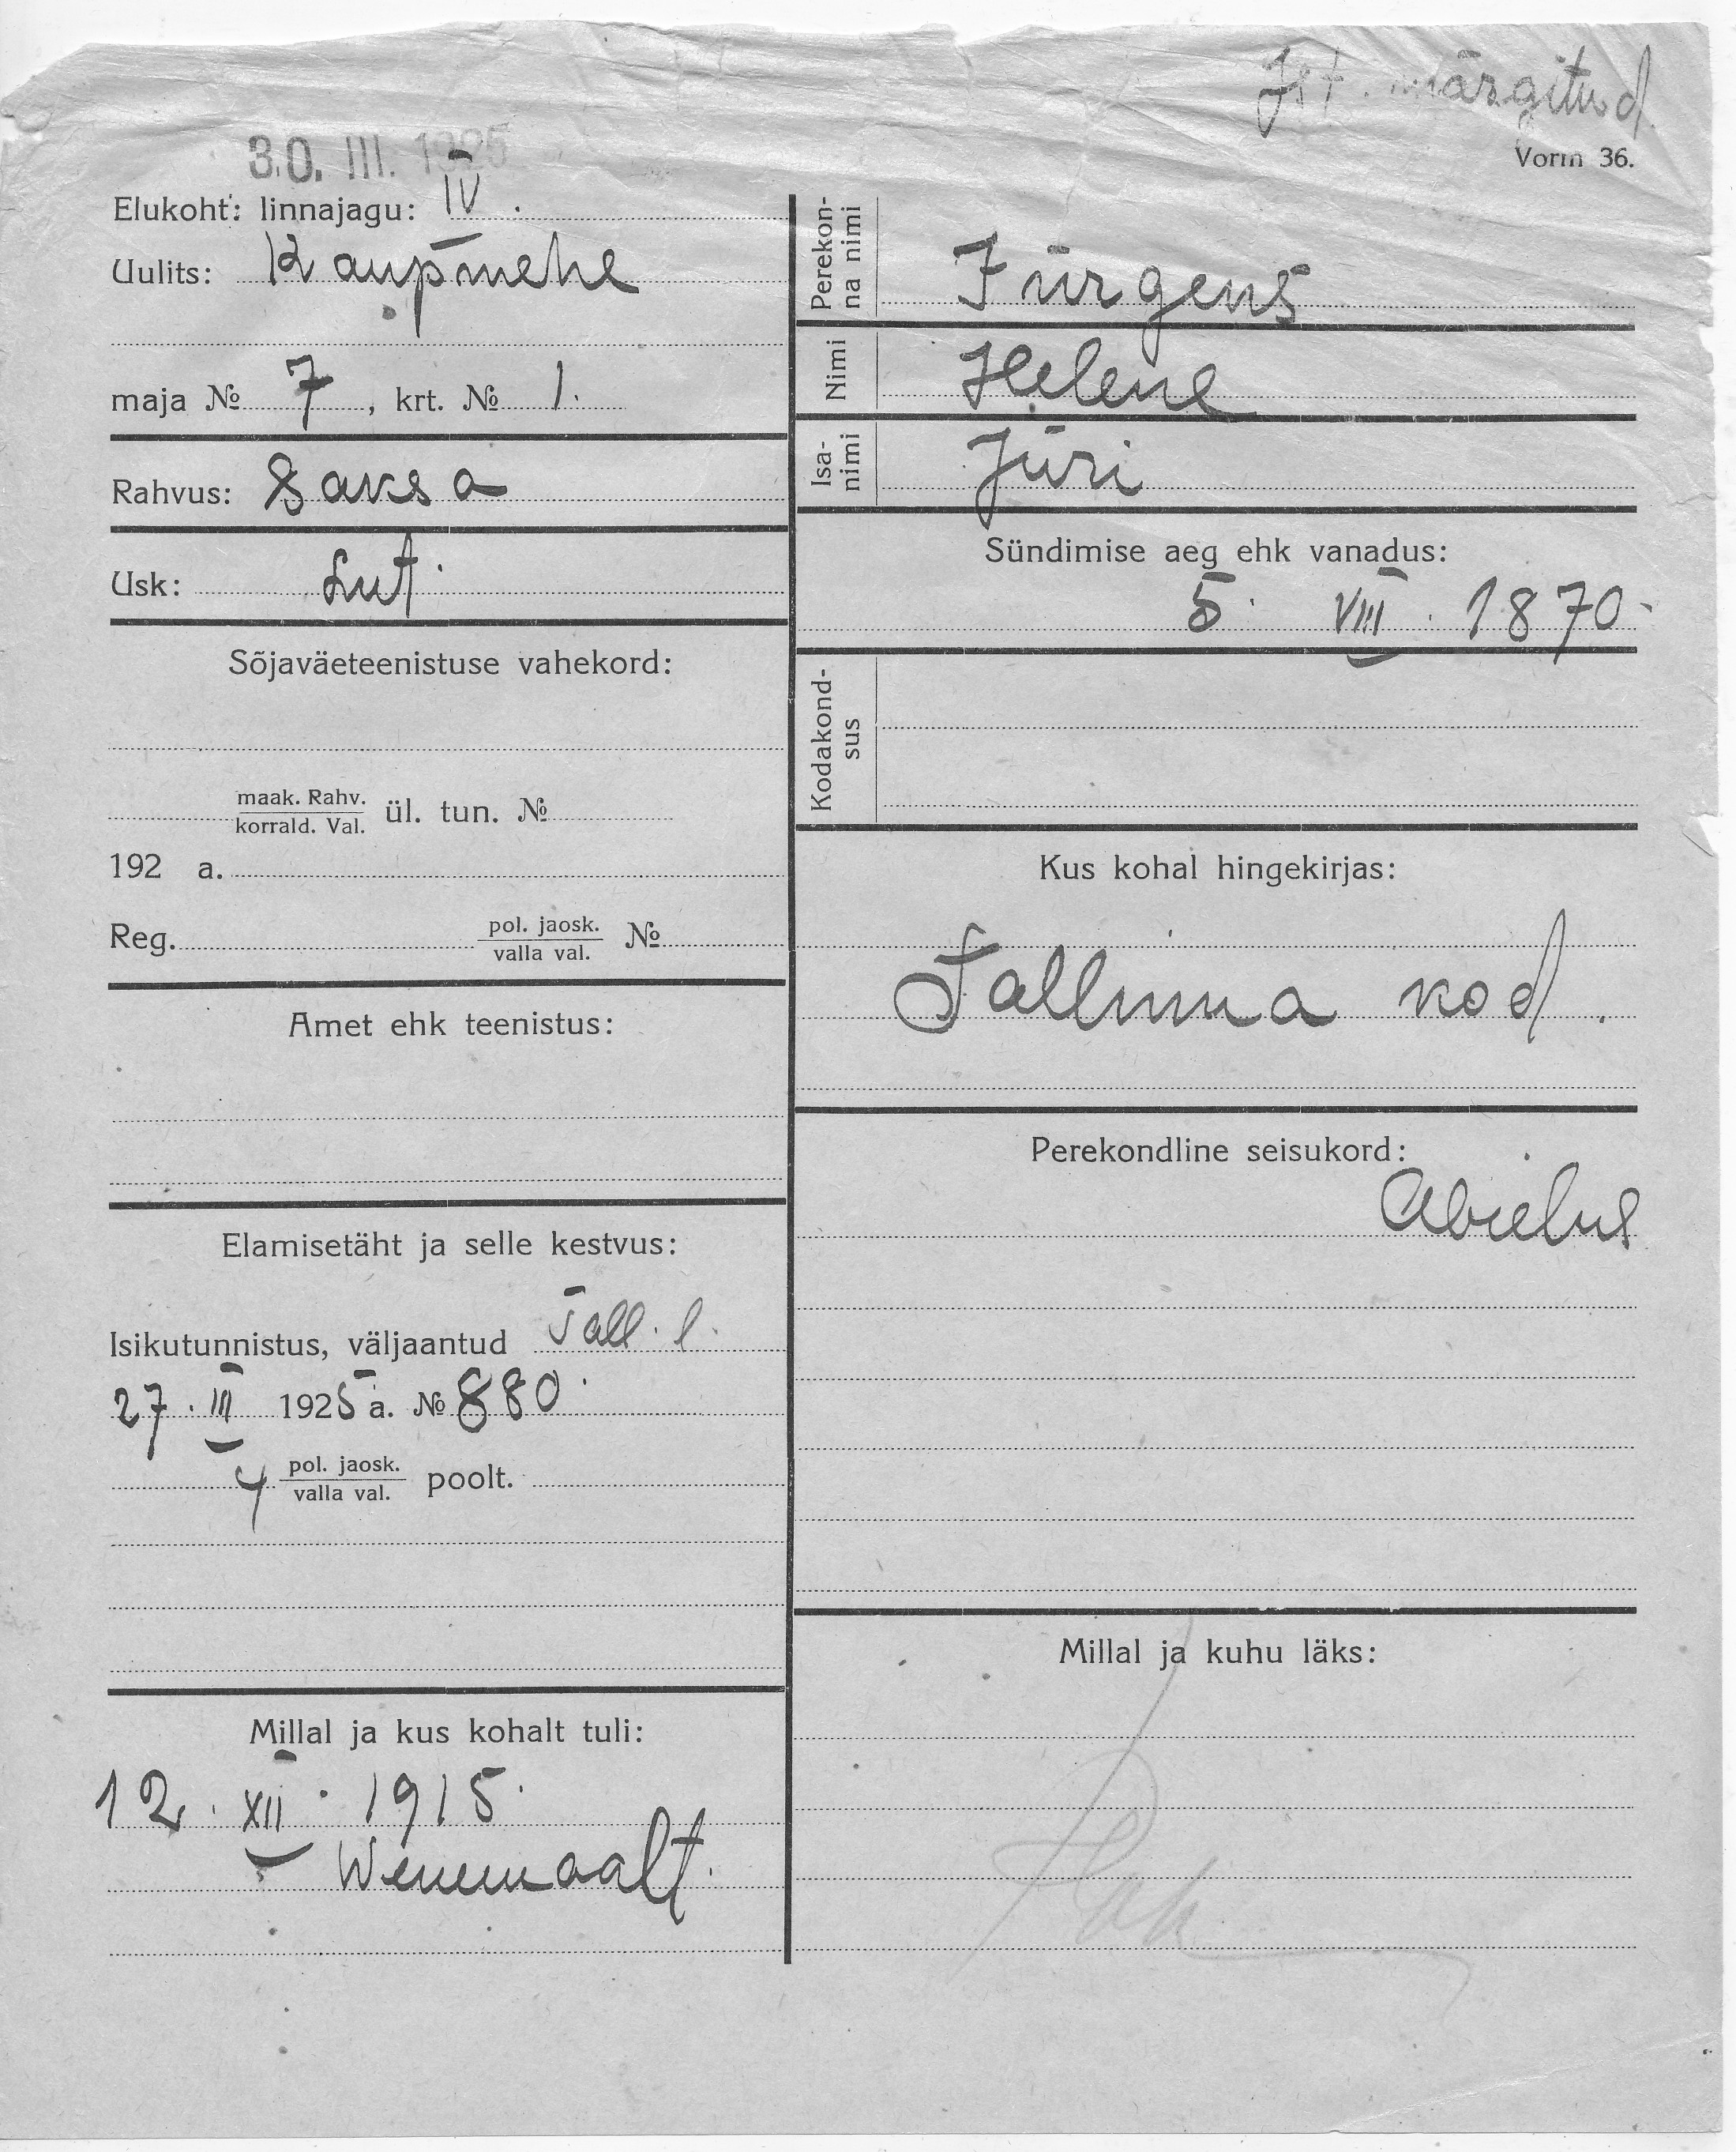 Ist. märgitud.
Vorm 36.
30. III. 1925
Elukoht: linnajagu: IV.
Uulits: Kaupmehe
maja № 7, krt. № 1.
Rahvus: Saksa
Usk: Lut.
Sõjaväeteenistuse vahekord:
maak. Rahv.
korrald. Val. ül. tun. №
192 a.
Reg. pol. jaosk. №
valla val.
Amet ehk teenistus:
Elamisetäht ja selle kestvus:
Isikutunnistus, väljaantud Tall. l.
27. III 1925 a. № 880.
4 pol. jaosk. poolt.
valla val.
Millal ja kus kohalt tuli:
12. XII. 1915.
Wenemaalt.
Perekon-
na nimi
Jürgens
Nimi Helene
Isa-
nimi
Jüri
Sündimise aeg ehk vanadus:
5. VIII. 1870.
Kodakond-
sus
Kus kohal hingekirjas:
Tallinna kod.
Perekondline seisukord:
Abielus
Millal ja kuhu läks: